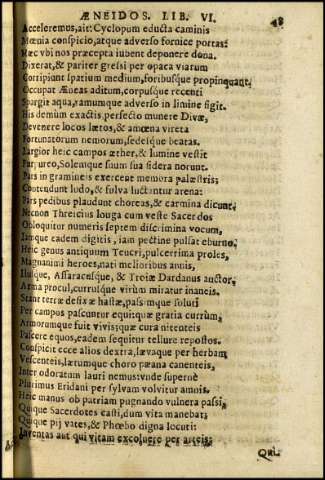 ÆNEIDOS. LIB. VI. 48
Acceleremus, ait: Cyclopum educta caminis
Mœnia conspicio, atque adverso fornice portas:
Hæc vbi nos præcepta iubent deponere dona.
Dixerat, & pariter gressi per opaca viarum
Corripiunt spatium medium, foribusque propinquant.
Occupat Æneas aditum, corpusque recenti
Spargit aqua, ramumque adverso in limine figit.
His demùm exactis, perfecto munere Divæ,
Devenere locos lætos, & amœna vireta
Fortunatorum nemorum, sedesque beatas.
Largior hîc campos æther, & lumine vestit
Purpureo, Solemque suum sua sidera norunt.
Pars in gramineis exercent membra palæstris;
Contendunt ludo, & fulva luctantur arena:
Pars pedibus plaudunt choreas, & carmina dicunt.
Necnon Threicius longa cum veste Sacerdos
Obloquitur numeris septem discrimina vocum,
Iamque eadem digitis, iam pectine pulsat eburno.
Hîc genus antiquum Teucri, pulcerrima proles,
Magnanimi heroes, nati melioribus annis,
Ilusque, Assaracusque, & Troiæ Dardanus auctor.
Arma procul, currusque virûm miratur inaneis.
Stant terræ defixæ hastæ, passimque soluti
Per campos pascuntur equi: quæ gratia currûm,
Armorumque fuit vivis; quæ cura nitenteis
Pascere equos, eadem sequitur tellure repostos.
Conspicit ecce alios dextra, lævaque per herbam
Vescenteis, lætumque choro pæana canenteis,
Inter odoratum lauri nemus: vnde supernè
Plurimus Eridani per sylvam volvitur amnis.
Heic manus ob patriam pugnando vulnera passi,
Quique Sacerdotes casti, dum vita manebat;
Quique pij vates, & Phœbo digna locuti:
Inventas aut qui vitam excoluere per arteis;
Qui-